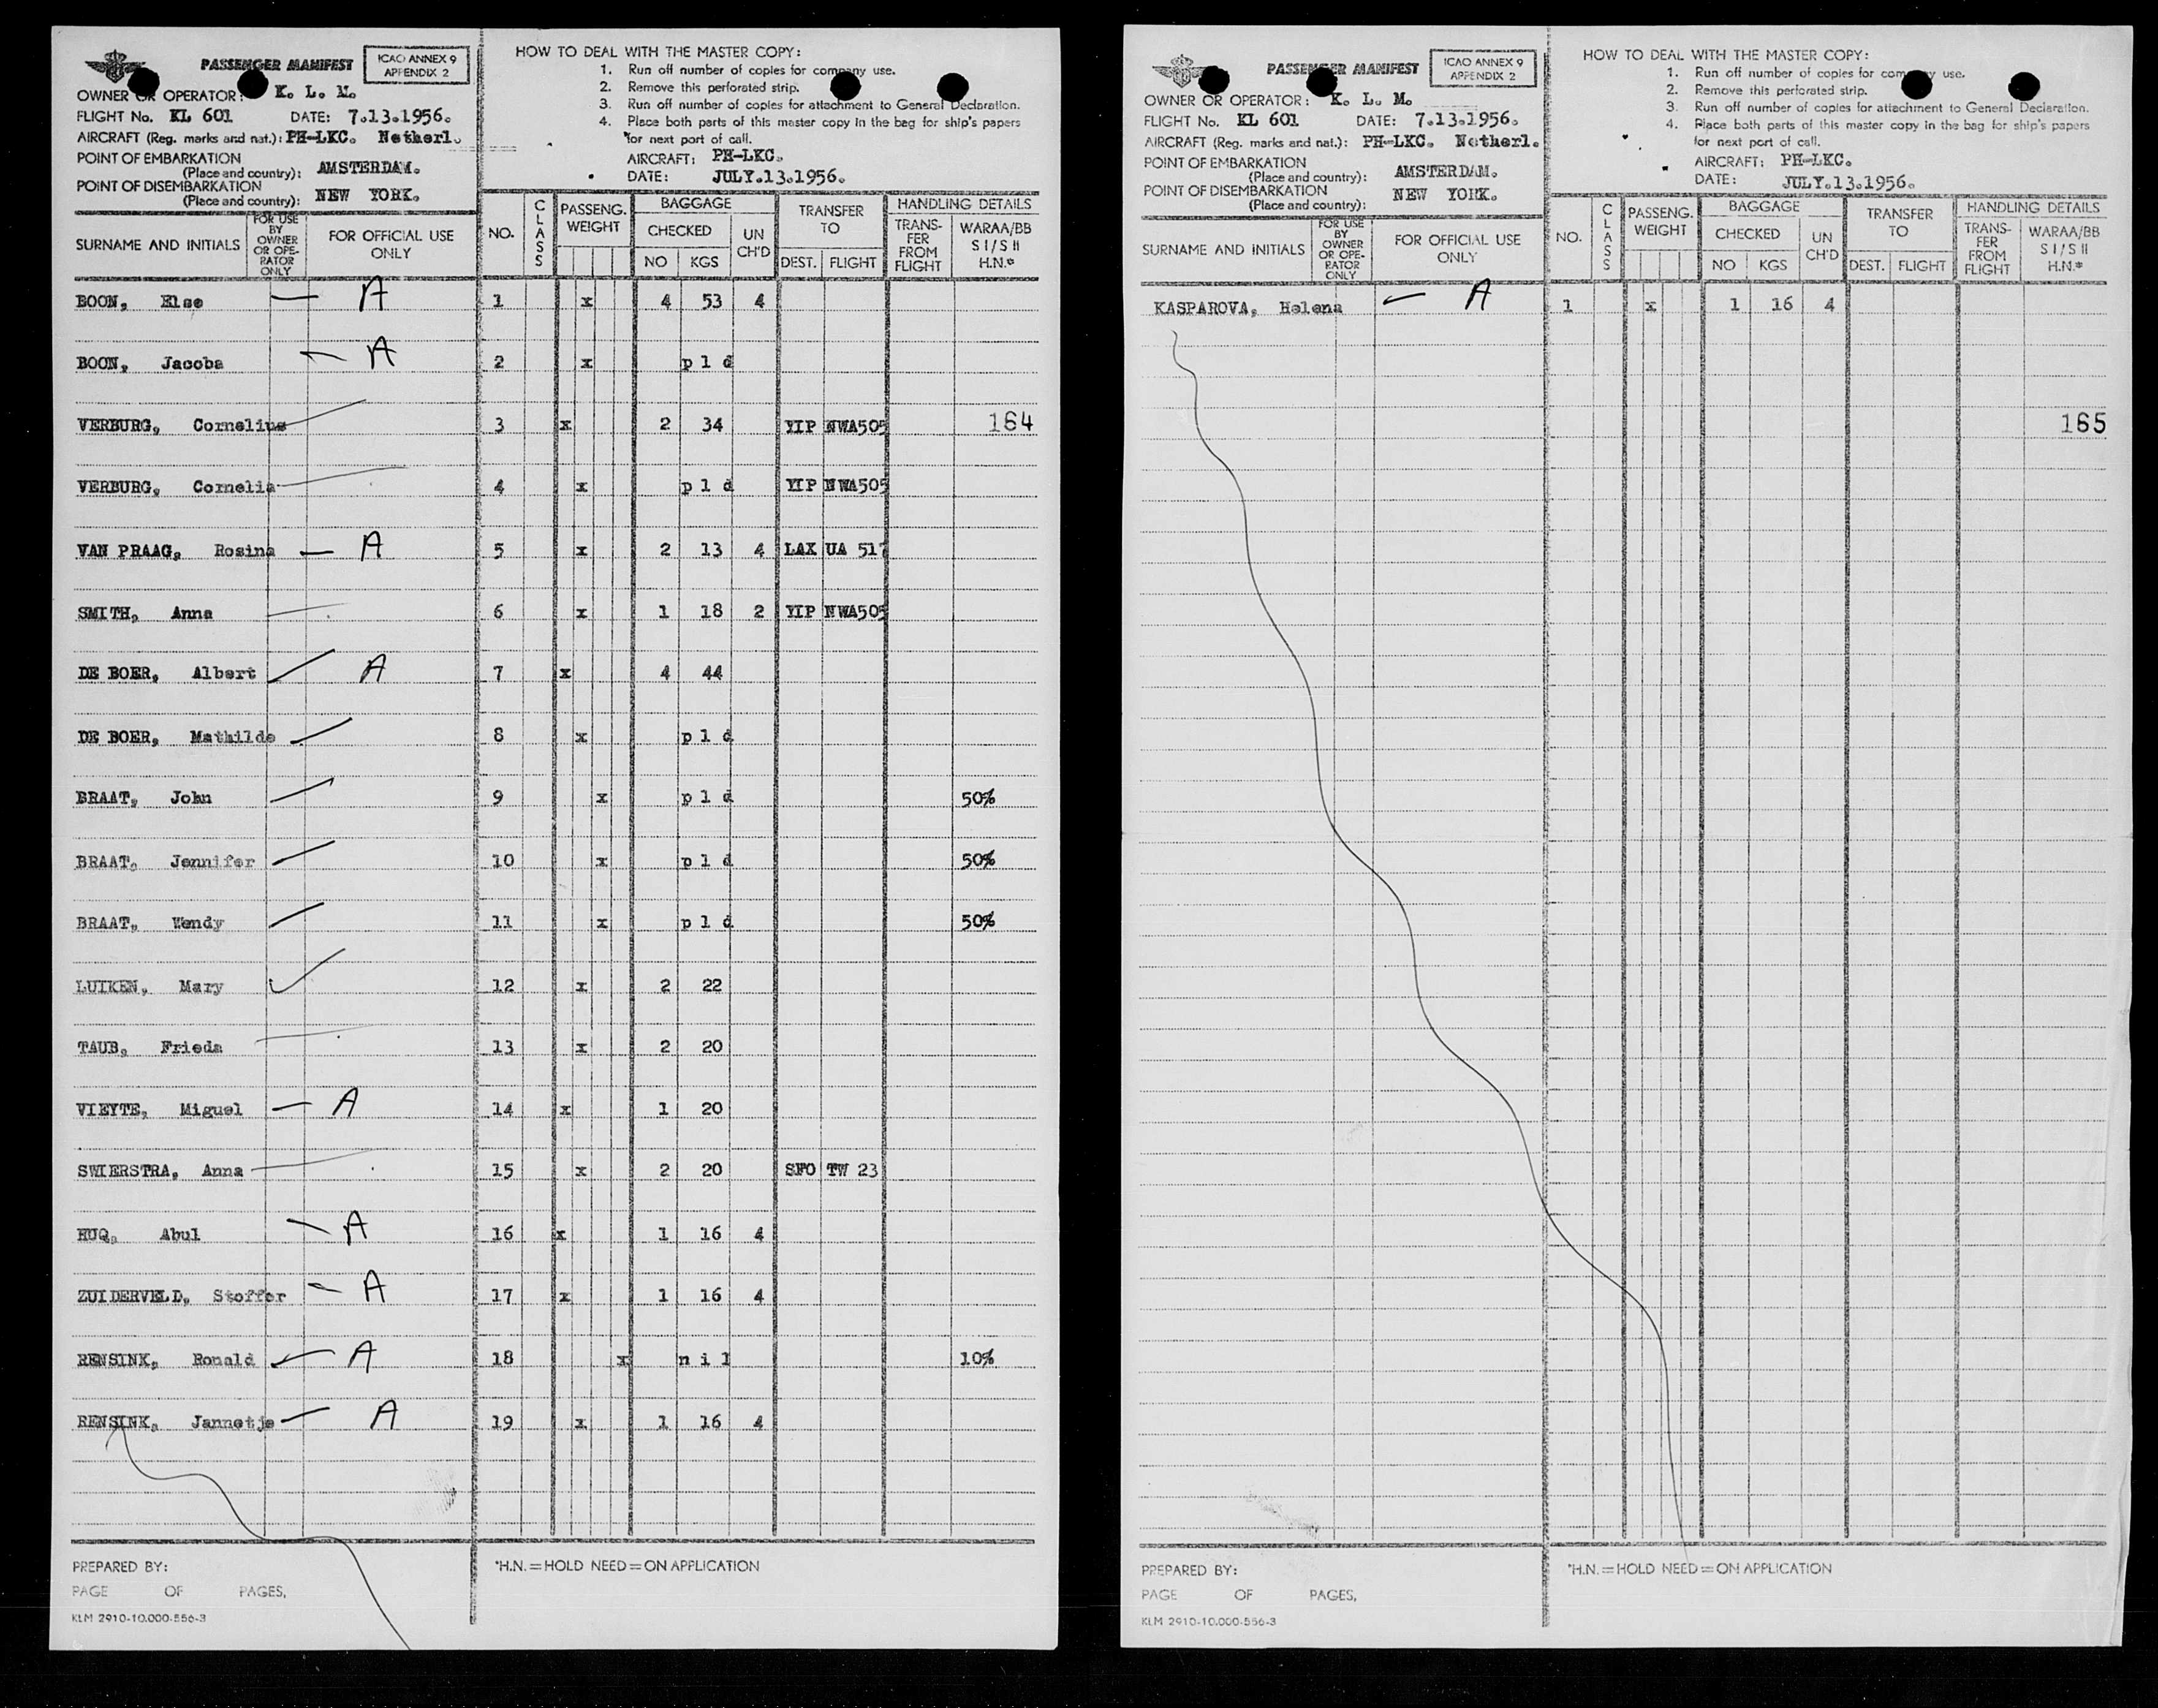 PASSENGER MANIFEST
ICAO ANNEX 9
APPENDIX 2
OWNER OR OPERATOR: K. L. M.
FLIGHT No. KL 601 DATE: 7.13.1956.
AIRCRAFT (Reg. marks and nat.): PH-LKC. Netherl.
POINT OF EMBARKATION
(Place and country): AMSTERDAM.
POINT OF DISEMBARKATION
(Place and country): NEW YORK.
HOW TO DEAL WITH THE MASTER COPY:
1. Run off number of copies for company use.
2. Remove this perforated strip.
3. Run off number of copies for attachment to General Declaration.
4. Place both parts of this master copy in the bag for ship's papers
for next port of call.
AIRCRAFT: PH-LKC.
DATE: JULY.13.1956.
SURNAME AND INITIALS
FOR USE BY OWNER OR OPE-RATOR ONLY
FOR OFFICIAL USE ONLY
NO.
CLASS
PASSENG. WEIGHT
BAGGAGE
CHECKED
NO KGS
UN CH'D
TRANSFER TO
DEST. FLIGHT
HANDLING DETAILS
TRANS-FER FROM FLIGHT
WARAA/BB S I/S II H.N.*
BOON, Else A 1 x 4 53 4
BOON, Jacoba A 2 x p l d
VERBURG, Cornelius 3 x 2 34 YIP NWA505 164
VERBURG, Cornelia 4 x p l d YIP NWA505
VAN PRAAG, Rosina A 5 x 2 13 4 LAX UA 517
SMITH, Anna 6 x 1 18 2 YIP NWA505
DE BOER, Albert A 7 x 4 44
DE BOER, Mathilde 8 x p l d
BRAAT, John 9 x p l d 50%
BRAAT, Jennifer 10 x p l d 50%
BRAAT, Wendy 11 x p l d 50%
LUIKEN, Mary 12 x 2 22
TAUB, Frieda 13 x 2 20
VIEYTE, Miguel A 14 x 1 20
SWIERSTRA, Anna 15 x 2 20 SFO TW 23
HUQ, Abul A 16 x 1 16 4
ZUIDERVELD, Stoffer A 17 x 1 16 4
RENSINK, Ronald A 18 x n i l 10%
RENSINK, Jannetje A 19 x 1 16 4
PREPARED BY:
PAGE OF PAGES,
KLM 2910-10.000-556-3
*H.N.=HOLD NEED=ON APPLICATION
PASSENGER MANIFEST
ICAO ANNEX 9
APPENDIX 2
OWNER OR OPERATOR: K. L. M.
FLIGHT No. KL 601 DATE: 7.13.1956.
AIRCRAFT (Reg. marks and nat.): PH-LKC. Netherl.
POINT OF EMBARKATION
(Place and country): AMSTERDAM.
POINT OF DISEMBARKATION
(Place and country): NEW YORK.
HOW TO DEAL WITH THE MASTER COPY:
1. Run off number of copies for company use.
2. Remove this perforated strip.
3. Run off number of copies for attachment to General Declaration.
4. Place both parts of this master copy in the bag for ship's papers
for next port of call.
AIRCRAFT: PH-LKC.
DATE: JULY.13.1956.
SURNAME AND INITIALS
FOR USE BY OWNER OR OPE-RATOR ONLY
FOR OFFICIAL USE ONLY
NO.
CLASS
PASSENG. WEIGHT
BAGGAGE
CHECKED
NO KGS
UN CH'D
TRANSFER TO
DEST. FLIGHT
HANDLING DETAILS
TRANS-FER FROM FLIGHT
WARAA/BB S I/S II H.N.*
KASPAROVA, Helena A 1 x 1 16 4
165
PREPARED BY:
PAGE OF PAGES,
KLM 2910-10.000-556-3
*H.N.=HOLD NEED=ON APPLICATION